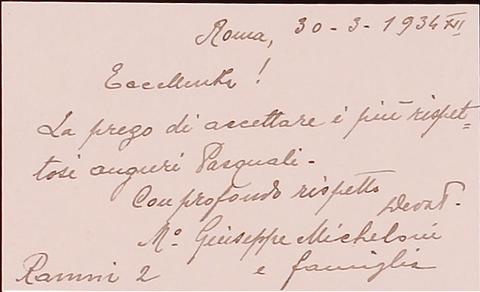 Roma, 30-3-1934 XII
Eccellenza!
La prego di accettare i più rispet=
tosi auguri Pasquali-
Con profondo rispetto
Devot.
M.o Giuseppe Micheloni
e famiglia
2